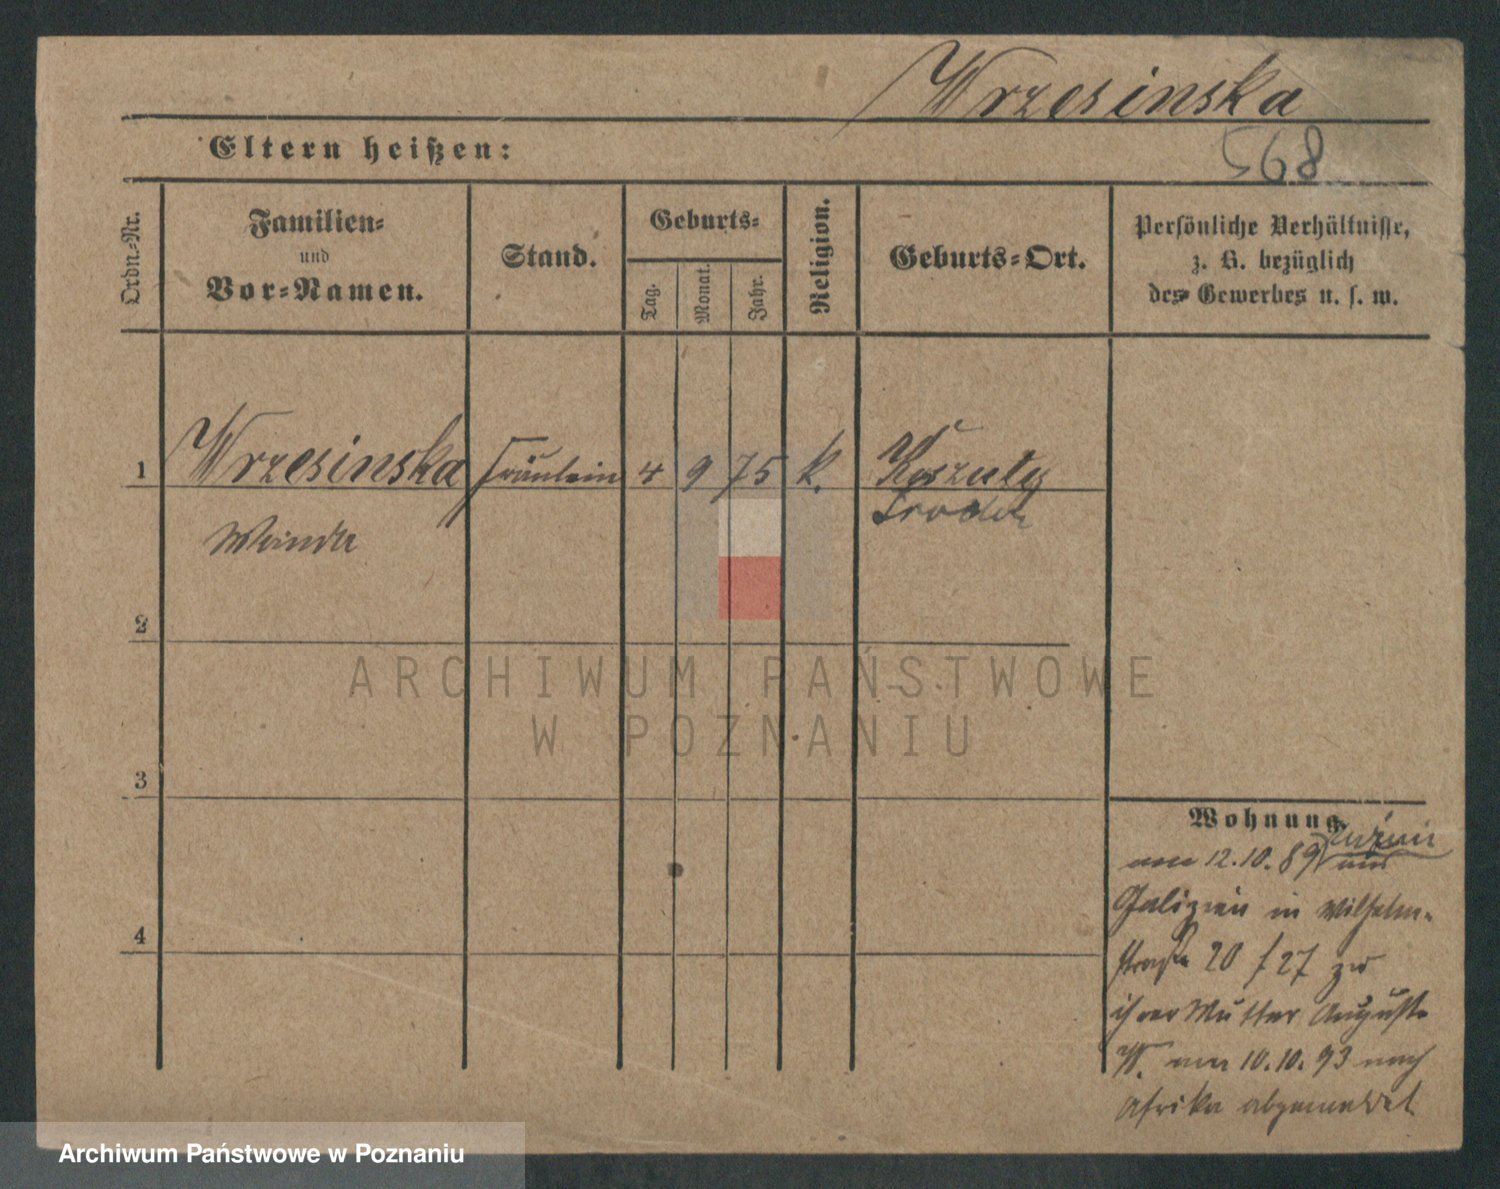 Wrzesinska
568
Eltern heißen:
Ordn.-Nr.
Familien-
und
Vor-Namen.
Stand.
Geburts-
Tag.
Monat.
Jahr.
Religion.
Geburts-Ort.
Persönliche Verhältnisse,
z. B. bezüglich
des Gewerbes u. s. w.
1
Wrzesinska Fräulein 4 9 75 k. Koszuty
Wanda
Schroda
2
3
4
Wohnung.
am 12.10.89 aus
Galizien in Wilhelm-
straße 20 / 27 zu
ihrer Mutter Auguste
W. am 10.10.93 nach
Afrika abgemeldet
ARCHIWUM PAŃSTWOWE
W POZNANIU
Archiwum Państwowe w Poznaniu